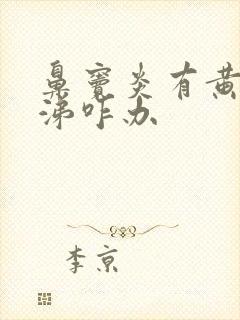 鼻窦炎有黄
涕咋办
李京